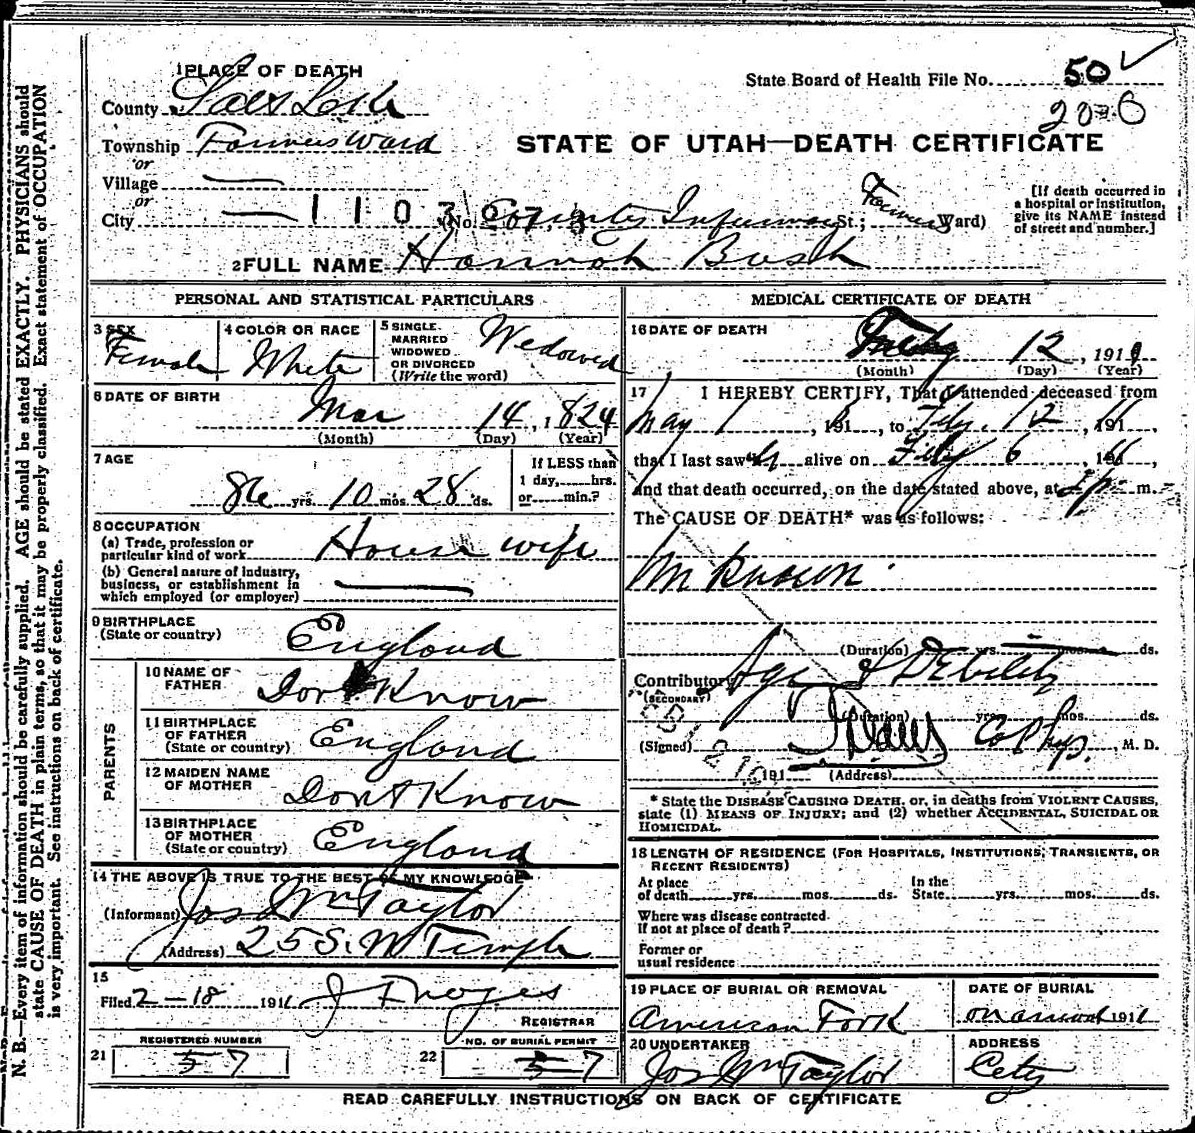 1 PLACE OF DEATH
State Board of Health File No. 50
County Salt Lake
Township Farmers Ward
STATE OF UTAH—DEATH CERTIFICATE
or
Village
or
City (No. County Infirmary St.; Farmers Ward)
[If death occurred in
a hospital or institution,
give its NAME instead
of street and number.]
2 FULL NAME Hannah Bush
PERSONAL AND STATISTICAL PARTICULARS
3 SEX
Female
4 COLOR OR RACE
White
5 SINGLE
MARRIED
WIDOWED
OR DIVORCED
(Write the word)
Wedowed
6 DATE OF BIRTH
Mar 14, 1824
(Month) (Day) (Year)
7 AGE
86 yrs. 10 mos. 28 ds.
If LESS than
1 day,......hrs.
or......min.?
8 OCCUPATION
(a) Trade, profession or
particular kind of work House wife
(b) General nature of industry,
business, or establishment in
which employed (or employer)
9 BIRTHPLACE
(State or country) England
PARENTS
10 NAME OF
FATHER Dont Know
11 BIRTHPLACE
OF FATHER
(State or country) England
12 MAIDEN NAME
OF MOTHER Dont Know
13 BIRTHPLACE
OF MOTHER
(State or country) England
14 THE ABOVE IS TRUE TO THE BEST OF MY KNOWLEDGE
(Informant) Jos Wm Taylor
(Address) 25 S. W Temple
15
Filed 2-18 1911 J Noyes
REGISTRAR
REGISTERED NUMBER
21 57
NO. OF BURIAL PERMIT
22 57
MEDICAL CERTIFICATE OF DEATH
16 DATE OF DEATH
Feby 12, 1911
(Month) (Day) (Year)
17 I HEREBY CERTIFY, That I attended deceased from
May 1, 191, to Feby. 12, 1911,
that I last saw h alive on Feby 6, 1911,
and that death occurred, on the date stated above, at p m.
The CAUSE OF DEATH* was as follows:
Unknown.
(Duration) yrs. mos. ds.
Contributory Age & Debility
(SECONDARY)
(Duration) yrs. mos. ds.
(Signed) Co Phys., M. D.
191 (Address)
* State the DISEASE CAUSING DEATH, or, in deaths from VIOLENT CAUSES,
state (1) MEANS OF INJURY; and (2) whether ACCIDENTAL, SUICIDAL OR
HOMICIDAL.
18 LENGTH OF RESIDENCE (FOR HOSPITALS, INSTITUTIONS, TRANSIENTS, OR
RECENT RESIDENTS)
At place
of death......yrs......mos......ds.
In the
State......yrs......mos......ds.
Where was disease contracted
if not at place of death?
Former or
usual residence
19 PLACE OF BURIAL OR REMOVAL
American Fork
DATE OF BURIAL
on arrival 1911
20 UNDERTAKER
Jos Wm Taylor
ADDRESS
City
READ CAREFULLY INSTRUCTIONS ON BACK OF CERTIFICATE
N. B.—Every item of information should be carefully supplied. AGE should be stated EXACTLY. PHYSICIANS should
state CAUSE OF DEATH in plain terms, so that it may be properly classified. Exact statement of OCCUPATION
is very important. See instructions on back of certificate.